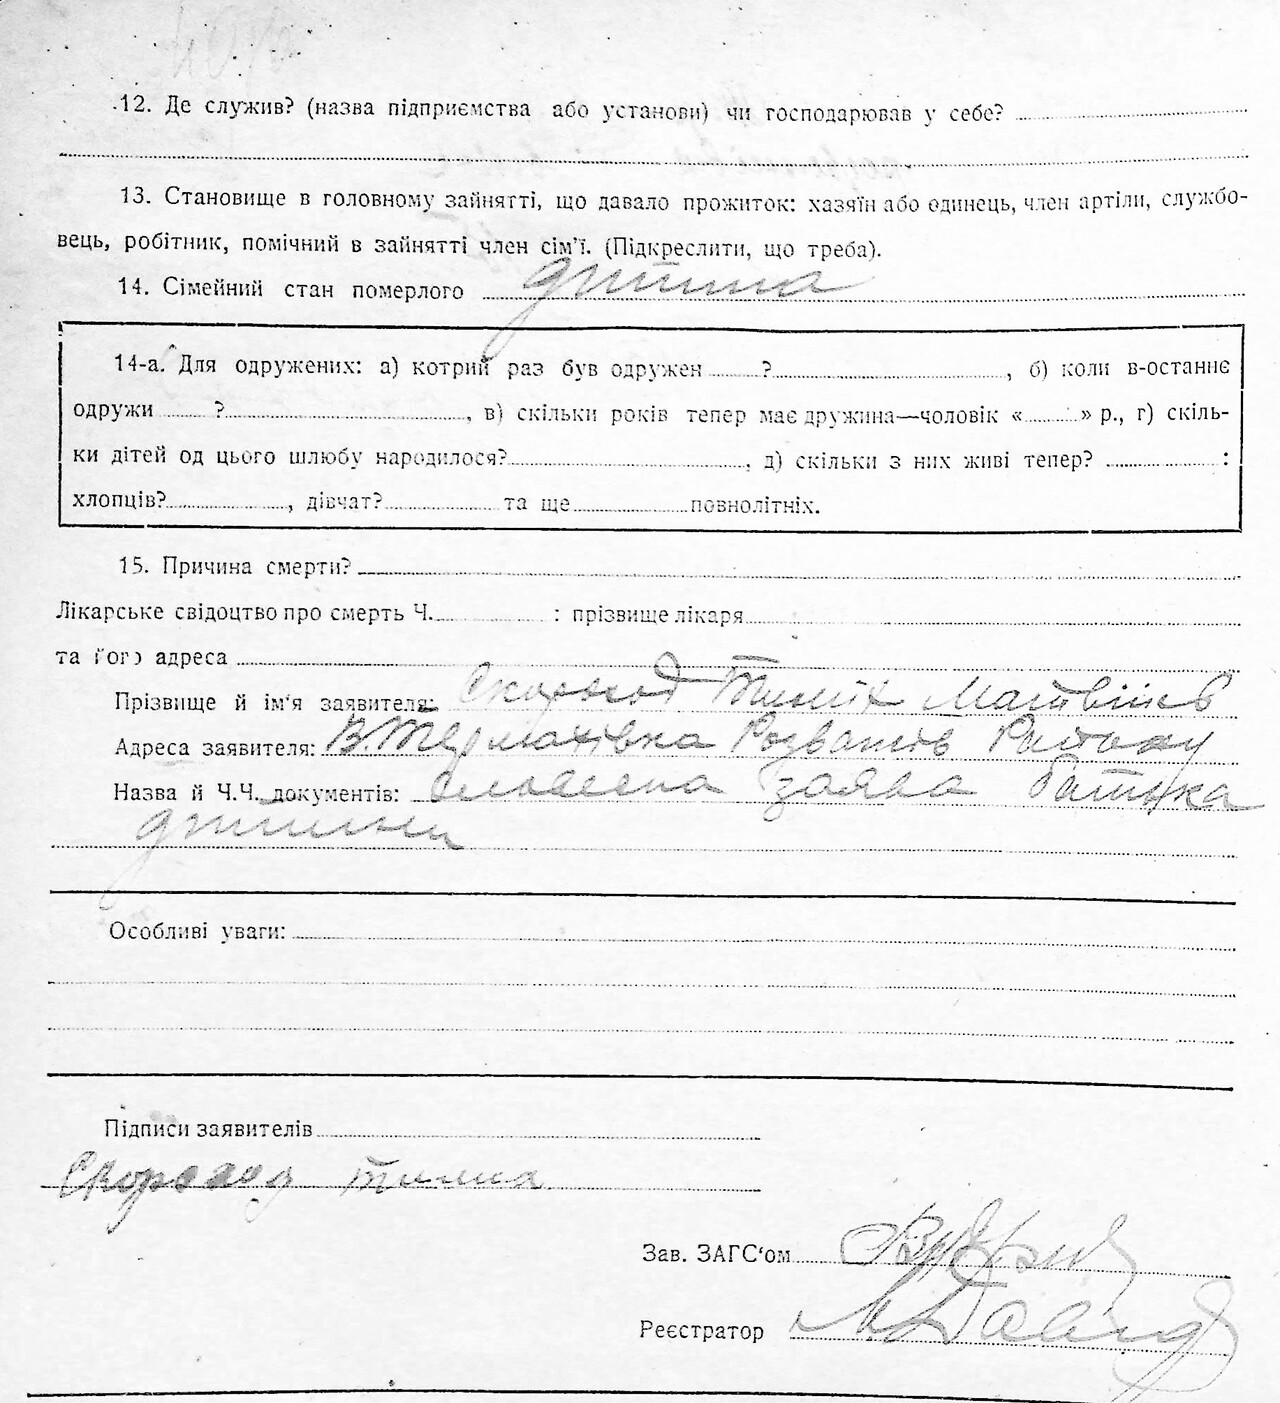 12. Де служив? (назва підприємства або установи) чи господарював у себе?
13. Становище в головному зайнятті, що давало прожиток: хазяїн або одинець, член артіли, службо-
вець, робітник, помічний в зайнятті член сім'ї. (Підкреслити, що треба).
14. Сімейний стан померлого дитина
14-а. Для одружених: а) котрий раз був одружен ? , б) коли в-останнє
одружи ? , в) скільки років тепер має дружина—чоловік « » р., г) скіль-
ки дітей од цього шлюбу народилося? , д) скільки з них живі тепер? :
хлопців? , дівчат? та ще повнолітніх.
15. Причина смерти?
Лікарське свідоцтво про смерть Ч. : прізвище лікаря
та його адреса
Прізвище й ім'я заявителя: Скороход Тиміх Матвійов
Адреса заявителя: В.Термахівка Розважів Району
Назва й Ч.Ч. документів: словесна заява батька
дитини
Особливі уваги:
Підписи заявителів
Скороход Тимиш
Зав. ЗАГС'ом
Реєстратор